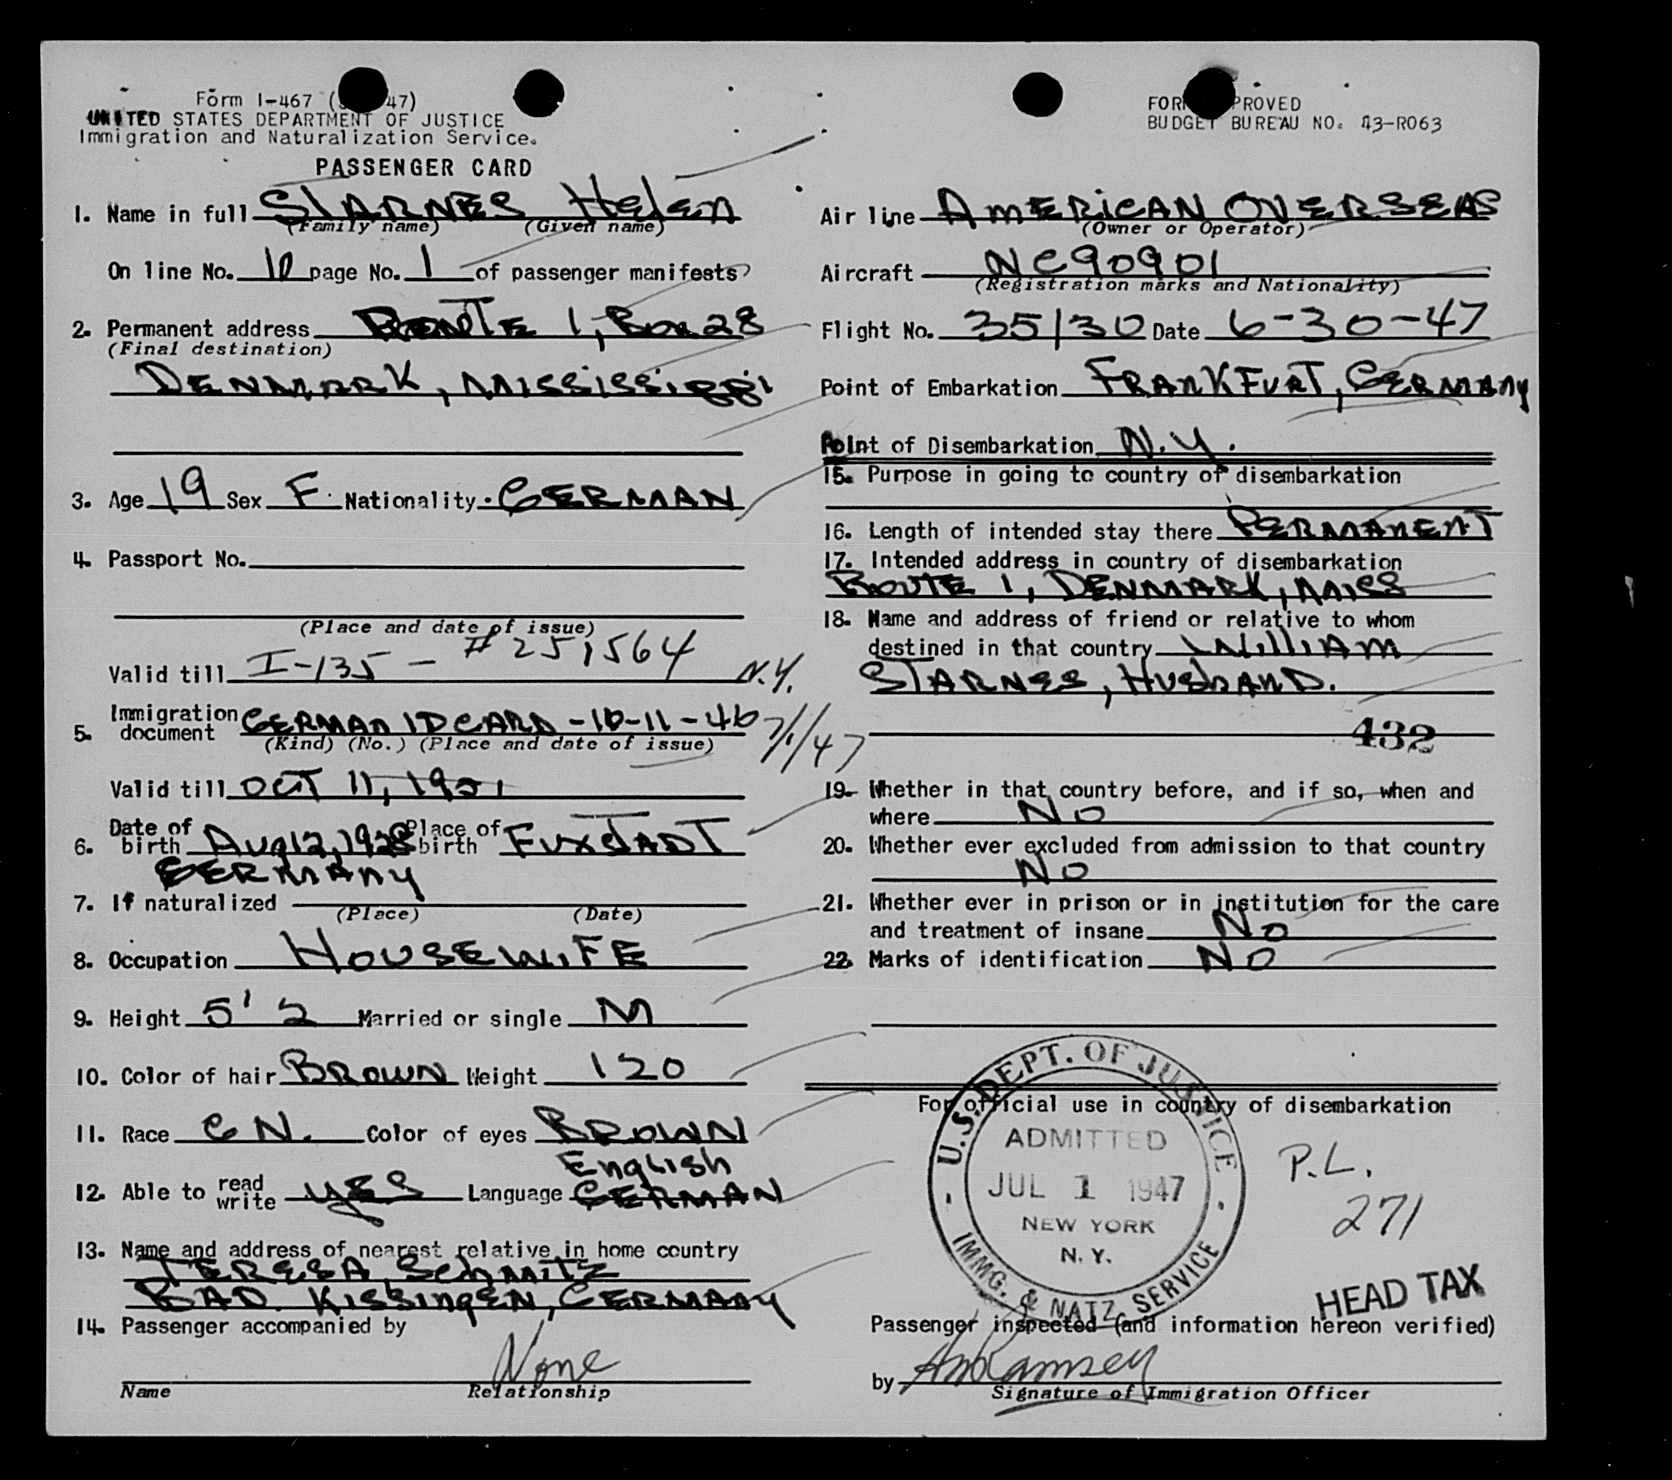 Form I-467 ( 47)
UNITED STATES DEPARTMENT OF JUSTICE
Immigration and Naturalization Service.
PASSENGER CARD
1. Name in full STARNES Helen
(Family name) (Given name)
On line No. 10 page No. 1 of passenger manifests
2. Permanent address ROUTE 1, Box 28
(Final destination)
DENMARK, MISSISSIPPI
3. Age 19 Sex F. Nationality GERMAN
4. Passport No.
(Place and date of issue)
Valid till I-135 - #251564 N.Y.
5. Immigration document GERMAN ID CARD - 10-11-46 7/1/47
(Kind) (No.) (Place and date of issue)
Valid till OCT 11, 1951
6. Date of birth Aug 12, 1928 Place of birth FUXSTADT
GERMANY
7. If naturalized
(Place) (Date)
8. Occupation HOUSEWIFE
9. Height 5' 2 Married or single M
10. Color of hair BROWN Weight 120
11. Race GN. Color of eyes BROWN
English
12. Able to read write YES Language GERMAN
13. Name and address of nearest relative in home country
TERESA SCHMITZ
BAD KISSINGEN, GERMANY
14. Passenger accompanied by
None
Name Relationship
FORM APPROVED
BUDGET BUREAU NO. 43-R063
Air line AMERICAN OVERSEAS
(Owner or Operator)
Aircraft NC90901
(Registration marks and Nationality)
Flight No. 35/30 Date 6-30-47
Point of Embarkation FRANKFURT, GERMANY
Point of Disembarkation N.Y.
15. Purpose in going to country of disembarkation
16. Length of intended stay there PERMANENT
17. Intended address in country of disembarkation
ROUTE 1, DENMARK, MISS
18. Name and address of friend or relative to whom
destined in that country WILLIAM
STARNES, HUSBAND.
432
19. Whether in that country before, and if so, when and
where NO
20. Whether ever excluded from admission to that country
NO
21. Whether ever in prison or in institution for the care
and treatment of insane NO
22. Marks of identification NO
For official use in country of disembarkation
U.S. DEPT. OF JUSTICE
ADMITTED
JUL 1 1947
NEW YORK
N.Y.
IMMG. & NATZ. SERVICE
P.L.
271
HEAD TAX
Passenger inspected (and information hereon verified)
by Ramsey
Signature of Immigration Officer